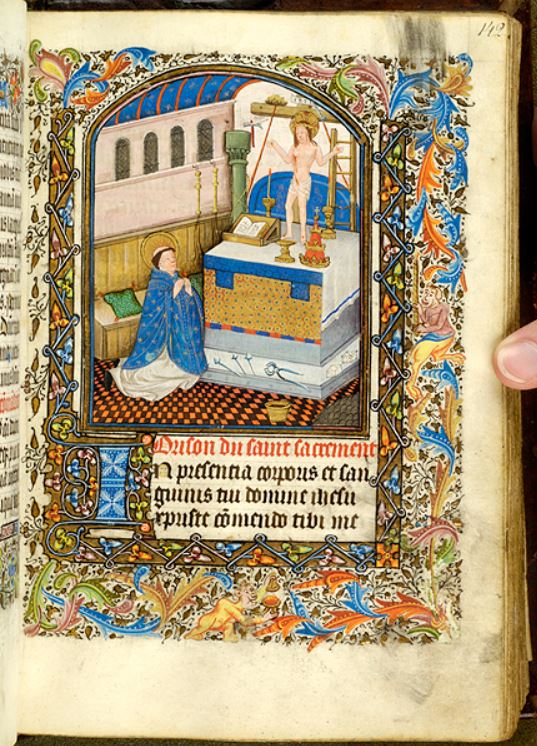 142
Oruson du saint sacrement
In presentia corporis et san
guinis tui domine ihesu
xpriste cõmendo tibi me